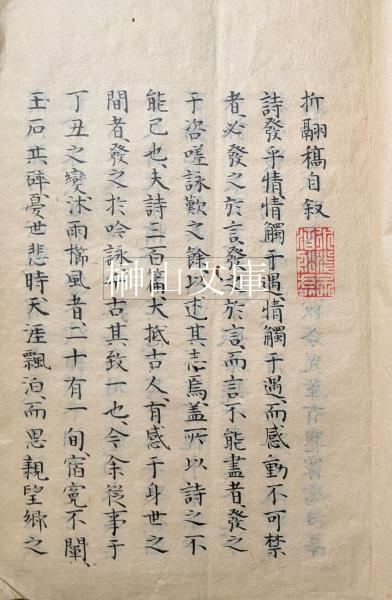 折翮稿自叙
詩發乎情情觸于遇情觸于遇而感動不可禁
者必發之於言發之於言而言不能盡者發之
于咨嗟詠歎之餘以述其志焉盖所以詩之不
能已也夫詩三百篇大抵古人有感于身世之
間者發之於吟詠今古其致一也今余從事于
丁丑之變沐雨櫛風者二十有一旬宿寃不闡
玉石共碎憂世悲時天涯飄泊而思親望郷之
榊山文庫